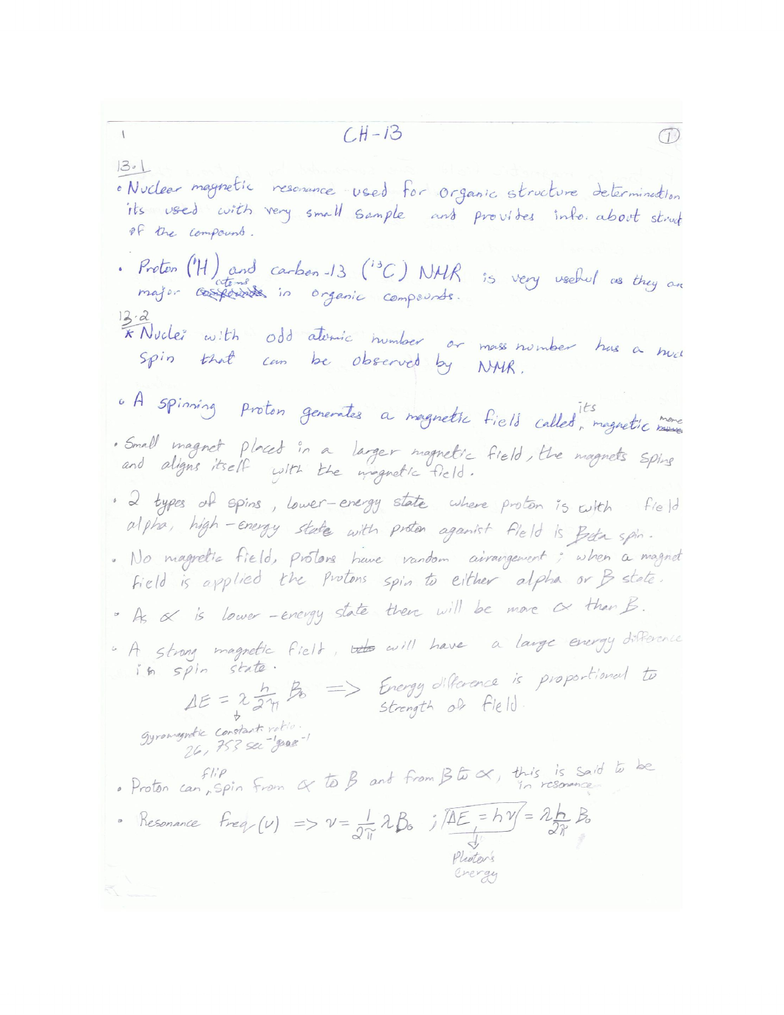 1 CH-13 1
13.1
• Nuclear magnetic resonance used for organic structure determination
its used with very small sample and provides info. about struct
of the compound.
• Proton (¹H) and carbon-13 (¹³C) NMR is very useful as they are
major atoms in organic compounds.
13.2
* Nuclei with odd atomic number or mass number has a nucl
spin that can be observed by NMR.
• A spinning proton generates a magnetic field called, its magnetic
• Small magnet placed in a larger magnetic field, the magnets spins
and aligns itself with the magnetic field.
• 2 types of spins, lower-energy state where proton is with field
alpha, high-energy state with proton aganist field is Beta spin.
• No magnetic field, protons have random airrangement; when a magnet
field is applied the protons spin to either alpha or B state.
• As α is lower-energy state there will be more α than B.
• A strong magnetic field, will have a large energy difference
in spin state.
ΔE = λ h/2π B₀ => Energy difference is proportional to
strength of field.
gyromagnetic constant ratio.
26,753 sec⁻¹gauss⁻¹
• Proton can flip, spin from α to B and from B to α, this is said to be
in resonance
• Resonance freq. (ν) => ν = 1/2π λ B₀ ; ΔE = hν = λ h/2π B₀
Photon's
Energy